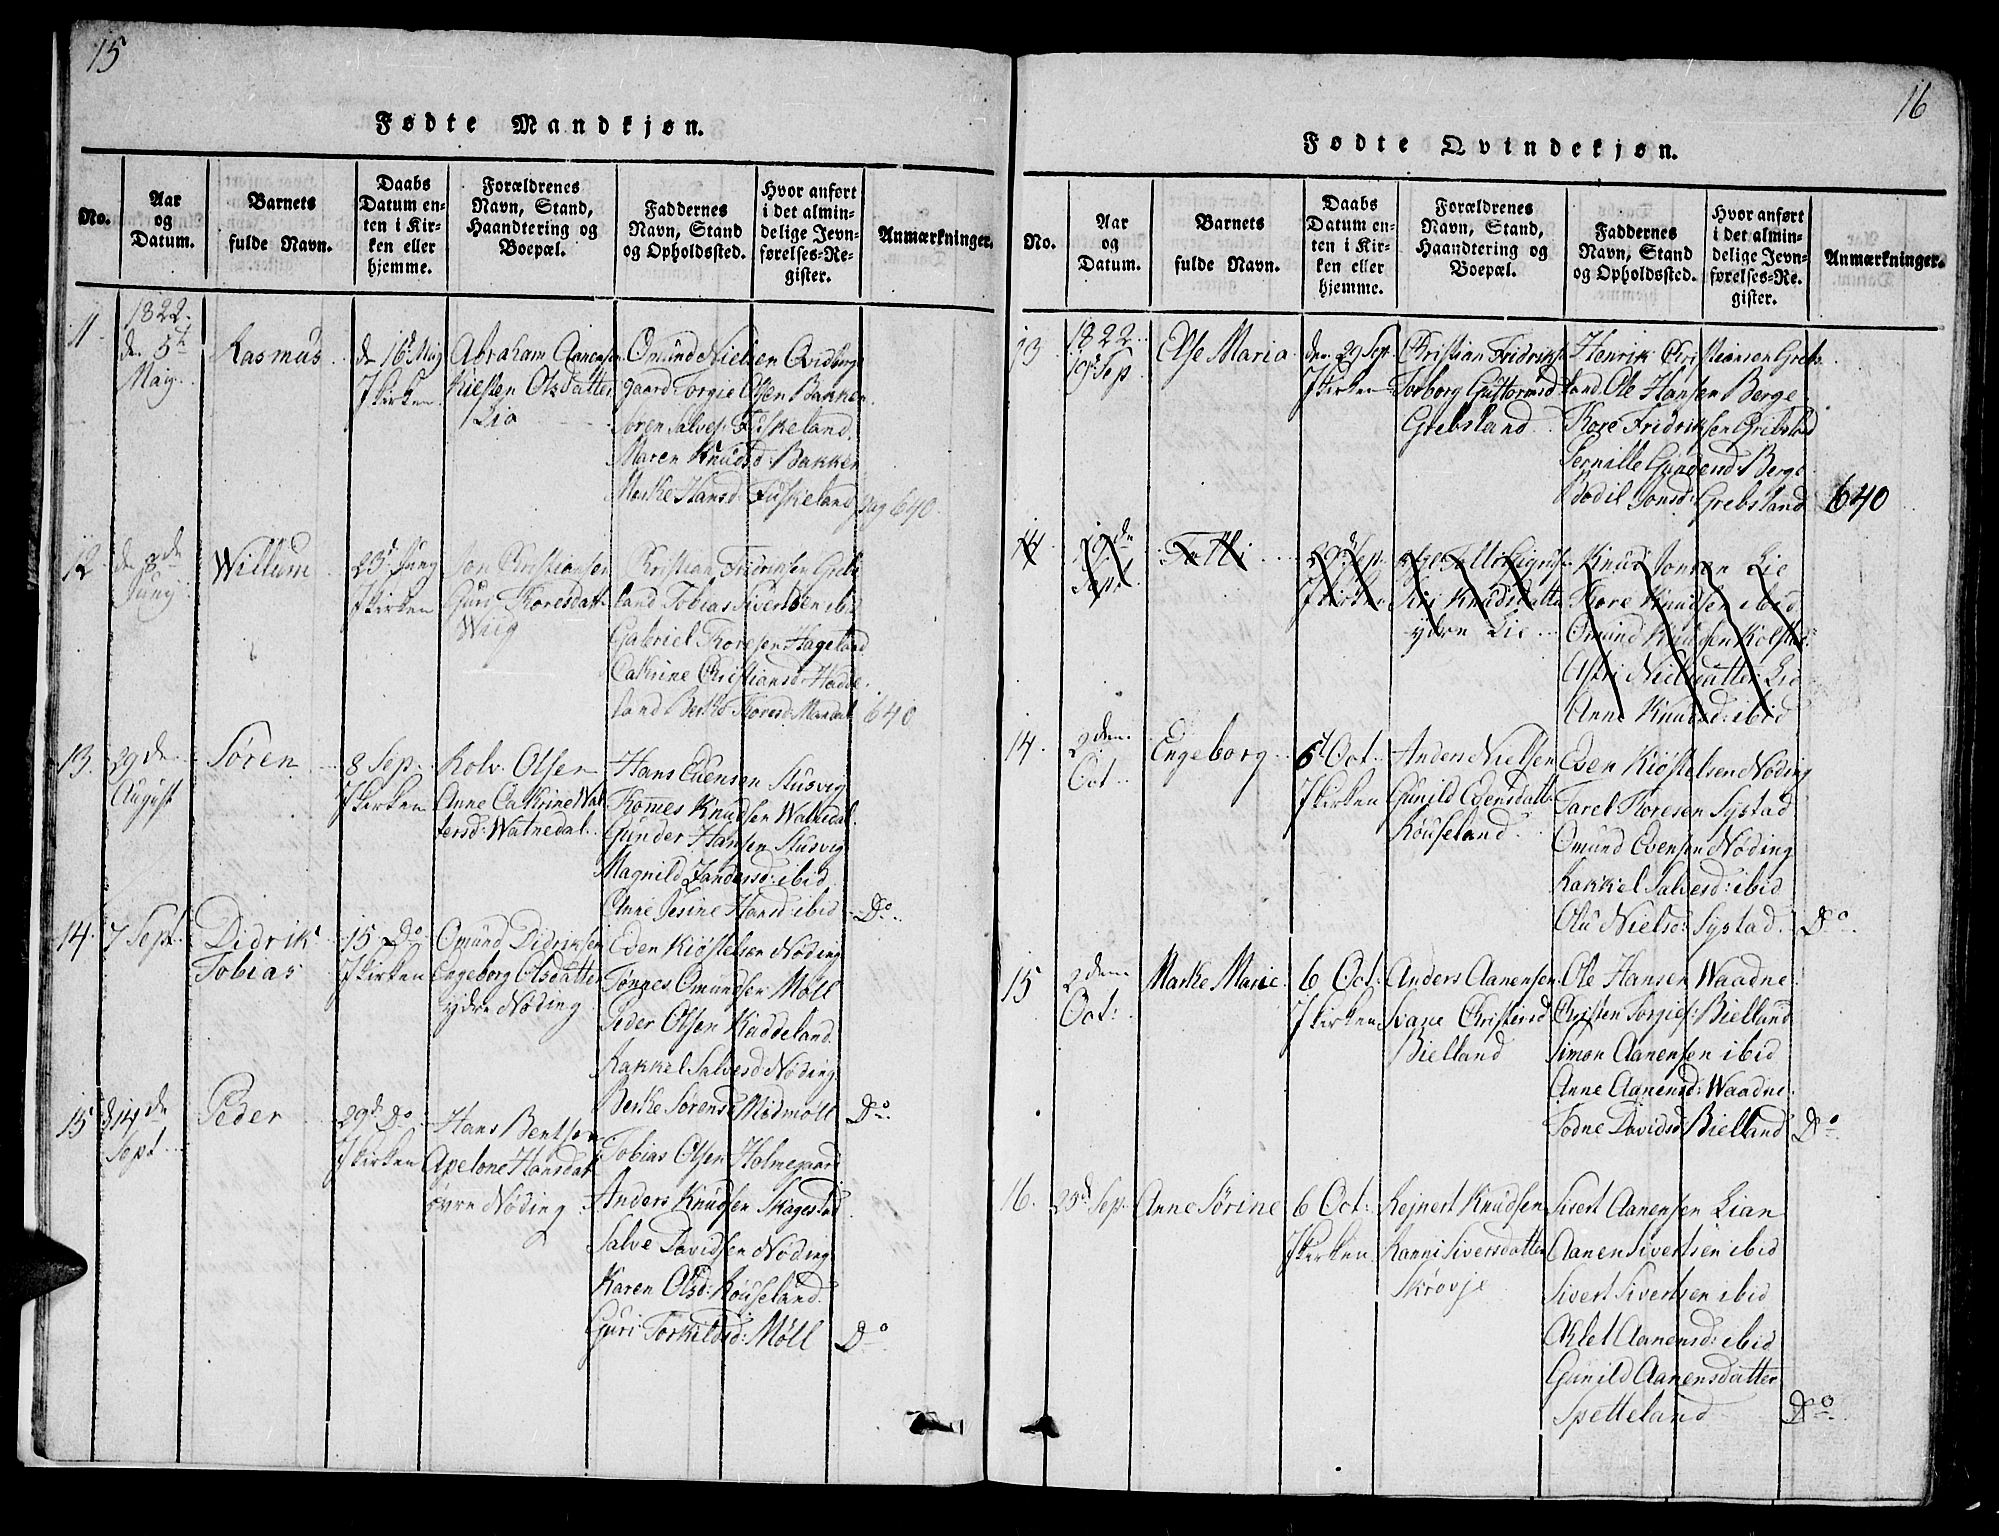 15
Fødte Mandkjøn.
No.
Aar
og
Datum.
Barnets
fulde Navn.
Daabs
Datum en-
ten i Kir-
ken eller
hjemme.
Forældrenes
Navn, Stand,
Haandtering og
Boepæl.
Faddernes
Navn, Stand
og Opholdssted.
Hvor anført
i det almin-
delige Jevn-
førelses-Re-
gister.
Anmærkninger.
11.
1822.
de 5t
Maij.
Rasmus
de 16d Maij
I kirken
Abraham Aanensen
Kirsten Olsdatter
Lia
Omund Nielsen Qvidberg
gaard Torgie Olsen Bakken
Søren Salves: Fuskeland.
Maren Knudsd: Bakken
Marke Hansd: Fuskeland
pag 640.
12
de 8de
Junij
Willum
23d Junij
I kirken
Jon Christiansen
Guri Thoresdatt
Wiig
Christian Fridriksen Greb
land Tobias Sivertsen ibid
Gabriel Thoresen Hageland
Catrine Christiansd: Hodde
land Berthe Thoresd: Mandal
640
13.
29de
August
Søren
8 Sep.
I kirken
Rolv Olsen
Anne Catrine Wal
tersd: Watnedal.
Hans Evensen Stusvig
Thomes Knudsen Watnedal.
Gunder Hansen Stusvig
Magnild Zandersd: ibid
Anne Jesine Hansd: ibid
Do.
14.
7 Sept.
Didrik
Tobias
15 Do
I kirken
Omund Didriksen
Engeborg Olsdatter
ydre Nøding
Even Kiøstelsen Nøding
Tønnes Omundsen Møll
Peder Olsen Kaddeland.
Rakkel Salvesd Nøding
Berthe Sørensd Modmøll
Do.
15
d 14de
Sept
Peder
29d Do.
I kirken
Hans Bentsen
Apelone Hansdat
øvre Nøding
Tobias Olsen Holmegaard
Anders Knudsen Skagestad
Salve Davidsen Nøding
Karen Olsd: Røuseland.
Guri Torkildsd: Møll
Do.
16
Fødte Qvindekjøn.
No.
Aar
og
Datum.
Barnets
fulde Navn.
Daabs
Datum en-
ten i Kir-
ken eller
hjemme.
Forældrenes
Navn, Stand,
Haandtering og
Boepæl.
Faddernes
Navn, Stand
og Opholdssted.
Hvor anført
i det almin-
delige Jevn-
førelses-Re-
gister.
Anmærkninger.
13.
1822.
19d Sep
Else Maria
den 29 Sep.
I kirken
Christian Fridriks
Torborg Guttormsd
Grebsland
Henrik Christiansen Grebs
land. Ole Hansen Berge
Thore Fridriksen Gribslad
Pernille Gundersd: Berge
Bodil Jonsd: Grebsland
640
14
19de
Sept
Talli
29d Sep.
I kirken
Siri Knudsdatter
ydre Lie
Knud Jonsen Lie
Thore Knudsen ibid
Omund Knudsen Kolstad
Astri Nielsdatter Lie
Anne Knudsd: ibid
14.
2den
Oct.
Engeborg
6d Oct.
I kirken
Anders Nielsen
Gunild Evensdatt
Røuseland
Even Kiøstelsen Nøding
Tarel Thoresen Systad
Omund Evensen Nøding
Rakkel Salvesd: ibid
Olu Nielsd: Systad.
Do.
15
2den
Oct:
Marke Marie
6 Oct:
I kirken
Anders Aanensen
Svane Christensd
Bielland
Ole Hansen Waadne
Christen Torgies: Bielland
Simon Aanensen ibid
Anne Aanensd: Waadne.
Todne Davidsd Bielland
Do.
16.
25d Sep.
Anne Sørine
6 Oct:
I kirken
Rejnert Knudsen
Ranni Siversdatter
Skrøvje
Sivert Aanensen Lian
Aanen Sivertsen ibid
Sivert Sivertsen ibid
Aslet Aanensd: ibid
Gunild Aanensdatter
Spetteland
Do.